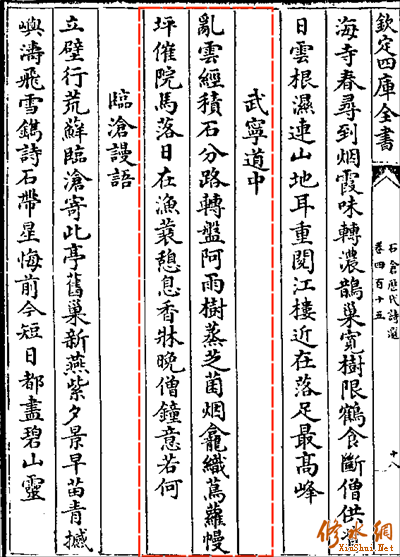 欽定四庫全書
石倉歷代詩選
卷四百十五
十八
海寺春尋到烟霞味轉濃鵲巢寬樹限鶴食斷僧供
日雲根濕連山地耳重閱江樓近在落足最高峰
武寧道中
亂雲經積石分路轉盤阿雨樹蒸芝菌烟龕織蔦蘿幔
坪催院馬落日在漁蓑憩息香牀晚僧鐘意若何
臨滄謾語
立壁行荒蘚臨滄寄此亭舊巢新燕紫夕景早苗青撼
嶼濤飛雪鐫詩石帶星悔前今短日都盡碧山靈
修水網
XiuShui.Net